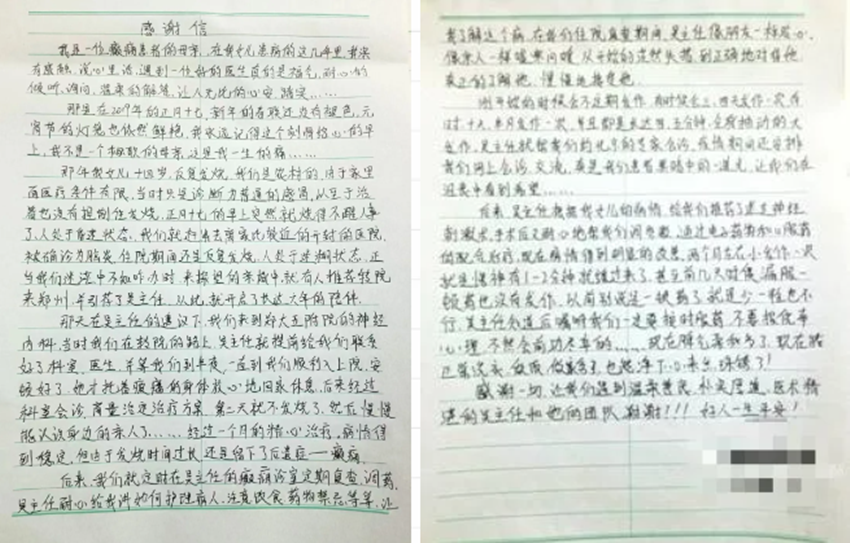 感谢信
我是一位癫痫患者的母亲，在我女儿患病的这几年里，我深
有感触，深心里话，遇到一位好的医生真的是福气，耐心的
倾听、询问，温柔的解答，让人无比的心安、踏实……
那是在2019年的正月十七，新年的春联还没有褪色，元
宵节的灯笼也依然鲜艳，我永远记得这个刻骨铭心的早
上，我不是一个称职的母亲，这是我一生的痛……
那年我女儿十四岁，反复发烧，我们是农村的，由于家里
面医疗条件有限，当时只是诊断为普通的感冒，从至于治
着也没有控制住发烧，正月十七的早上突然就烧得不醒人事
了，人处于昏迷状态，我们就赶紧去离家比较近的开封的医院，
被确诊为脑炎，住院期间还是反复发烧，人处于迷糊状态，正
当我们迷茫中不知咋办时，来探望的亲戚中，就有人推荐转院
来郑州，并引荐了吴主任，从此，就开启了长达六年的陪伴。
那天在吴主任的建议下，我们来到郑大五附院的神经
内科，当时我们在转院的路上，吴主任就提前给我们联系
好了科室、医生，并等我们到半夜，一直到我们顺利入上院，安
顿好了，她才拖着疲惫的身体放心地回家休息，后来经过
科室会诊，商量治定治疗方案，第二天就不发烧了，然后慢慢
能认识身边的亲人了……，经过一个月的精心治疗，病情得
到稳定，但由于发烧时间过长，还是留下了后遗症——癫痫。
后来，我们就定时在吴主任的癫痫诊室定期复查、调药，
吴主任耐心给我讲如何护理病人，注意饮食、药物禁忌等等，让
我了解这个病，在我们住院复查期间，吴主任像朋友一样贴心，
像亲人一样嘘寒问暖，从开始的茫然失措，到正确地对待他，
真正的了解他，慢慢地接受他。
刚开始的时候会不定期发作，有时候会三、四天发作一次，有
时，十天、半月发作一次，并且都是长达四、五分钟，全身抽动的大
发作，吴主任就帮我们约北京的专家会诊，疫情期间还安排
我们网上会诊、交流，真是我们患者黑暗中的一道光，让我们在
迷茫中看到希望……
后来，吴主任根据我女儿的病情，给我们推荐了迷走神经
刺激术，手术后又耐心地帮我们调参数，通过电子药物和口服药
的配合治疗，现在病情得到明显的改善，两个月左右小发作一次，
就是愣神有1-2分钟就缓过来了，甚至前几天时候，漏服一
顿药也没有发作，以前别说是一顿药了，就是少一粒也不
行，吴主任知道后嘱咐我们一定要按时服药，不要报侥幸
心理，不然会前功尽弃的……，现在脾气柔和多了，现在
画、做饭、做美食了，也能净下心来，珠绣了！
感谢一切，让我们遇到温柔善良，朴实厚道，医术精
湛的吴主任和他的团队，谢谢！！！好人一生平安！